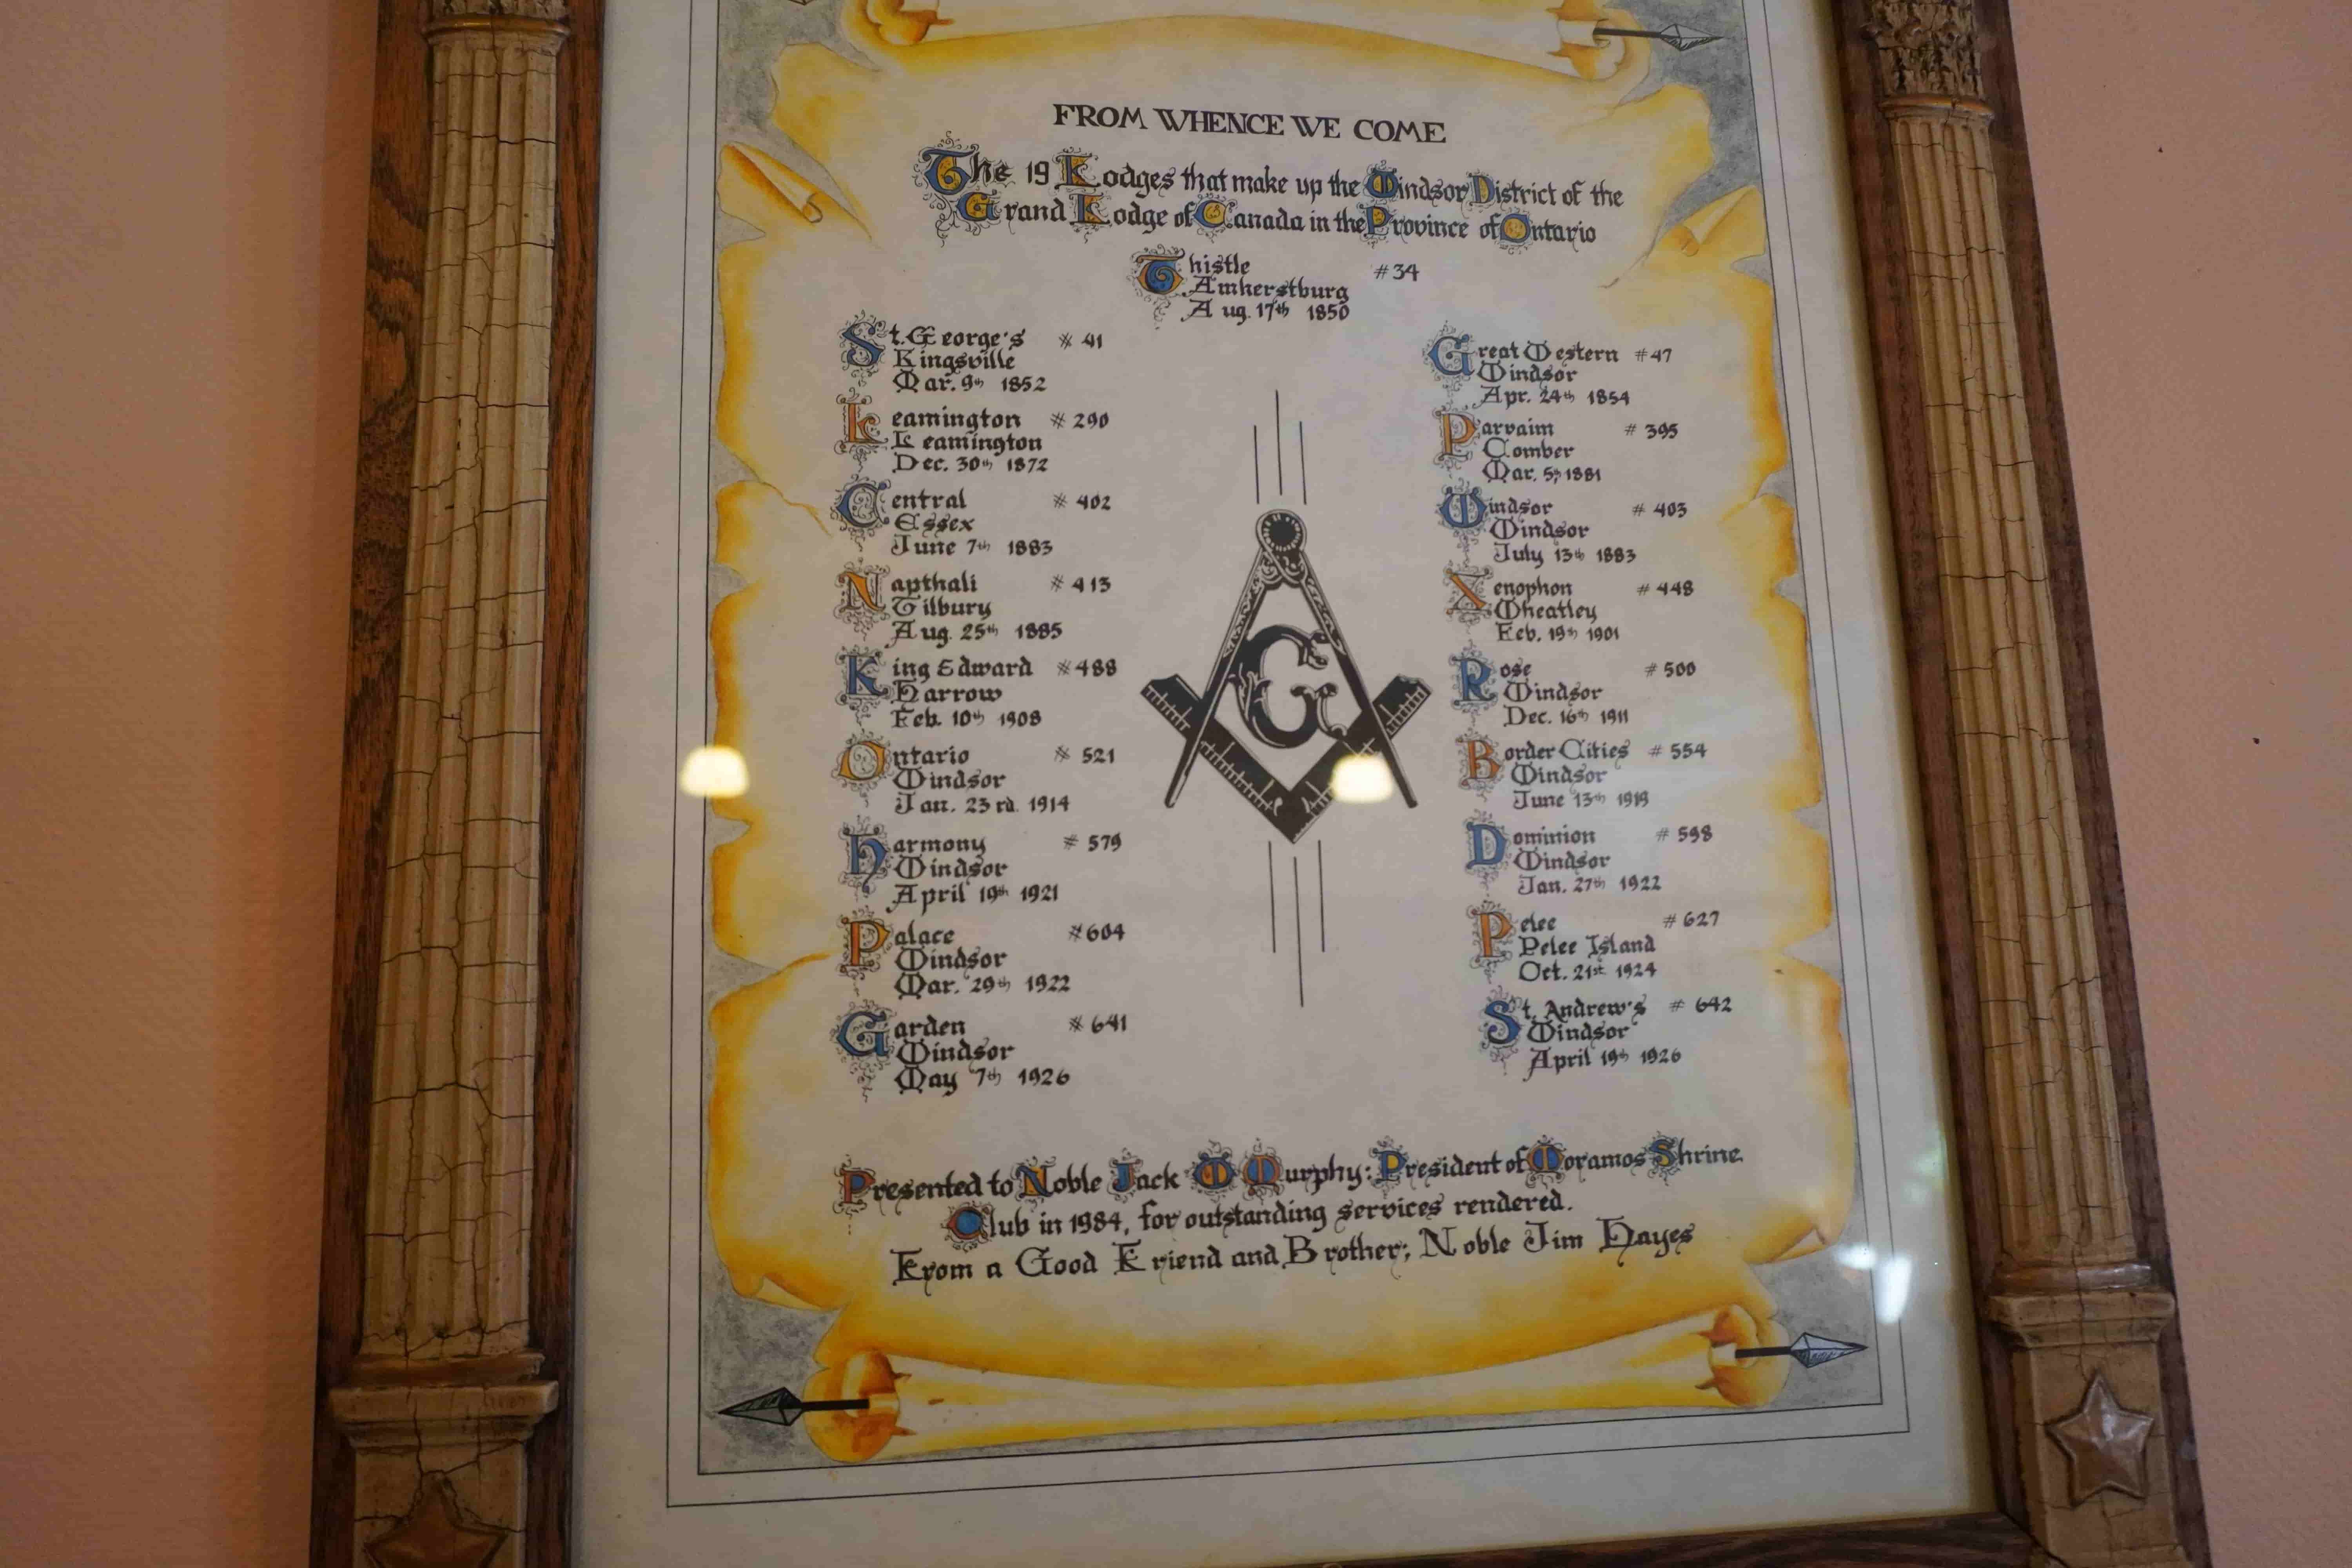 FROM WHENCE WE COME
The 19 Lodges that make up the Windsor District of the
Grand Lodge of Canada in the Province of Ontario
Thistle #34
Amherstburg
Aug. 17th 1850
St. George's # 41
Kingsville
Mar. 9th 1852
Leamington # 290
Leamington
Dec. 30th 1872
Central # 402
Essex
June 7th 1883
Napthali # 413
Tilbury
Aug. 25th 1885
King Edward # 488
Harrow
Feb. 10th 1908
Ontario # 521
Windsor
Jan. 23rd. 1914
Harmony # 579
Windsor
April 19th 1921
Palace #604
Windsor
Mar. 29th 1922
Garden # 641
Windsor
May 7th 1926
G
Great Western #47
Windsor
Apr. 24th 1854
Parvaim # 395
Comber
Mar. 5th 1881
Windsor # 403
Windsor
July 13th 1883
Xenophon # 448
Wheatley
Feb. 19th 1901
Rose # 500
Windsor
Dec. 16th 1911
Border Cities # 554
Windsor
June 13th 1919
Dominion # 598
Windsor
Jan. 27th 1922
Pelee # 627
Pelee Island
Oct. 21st 1924
St. Andrew's # 642
Windsor
April 19th 1926
Presented to Noble Jack W Murphy: President of Moramos Shrine
Club in 1984, for outstanding services rendered.
From a Good Friend and Brother; Noble Jim Hayes